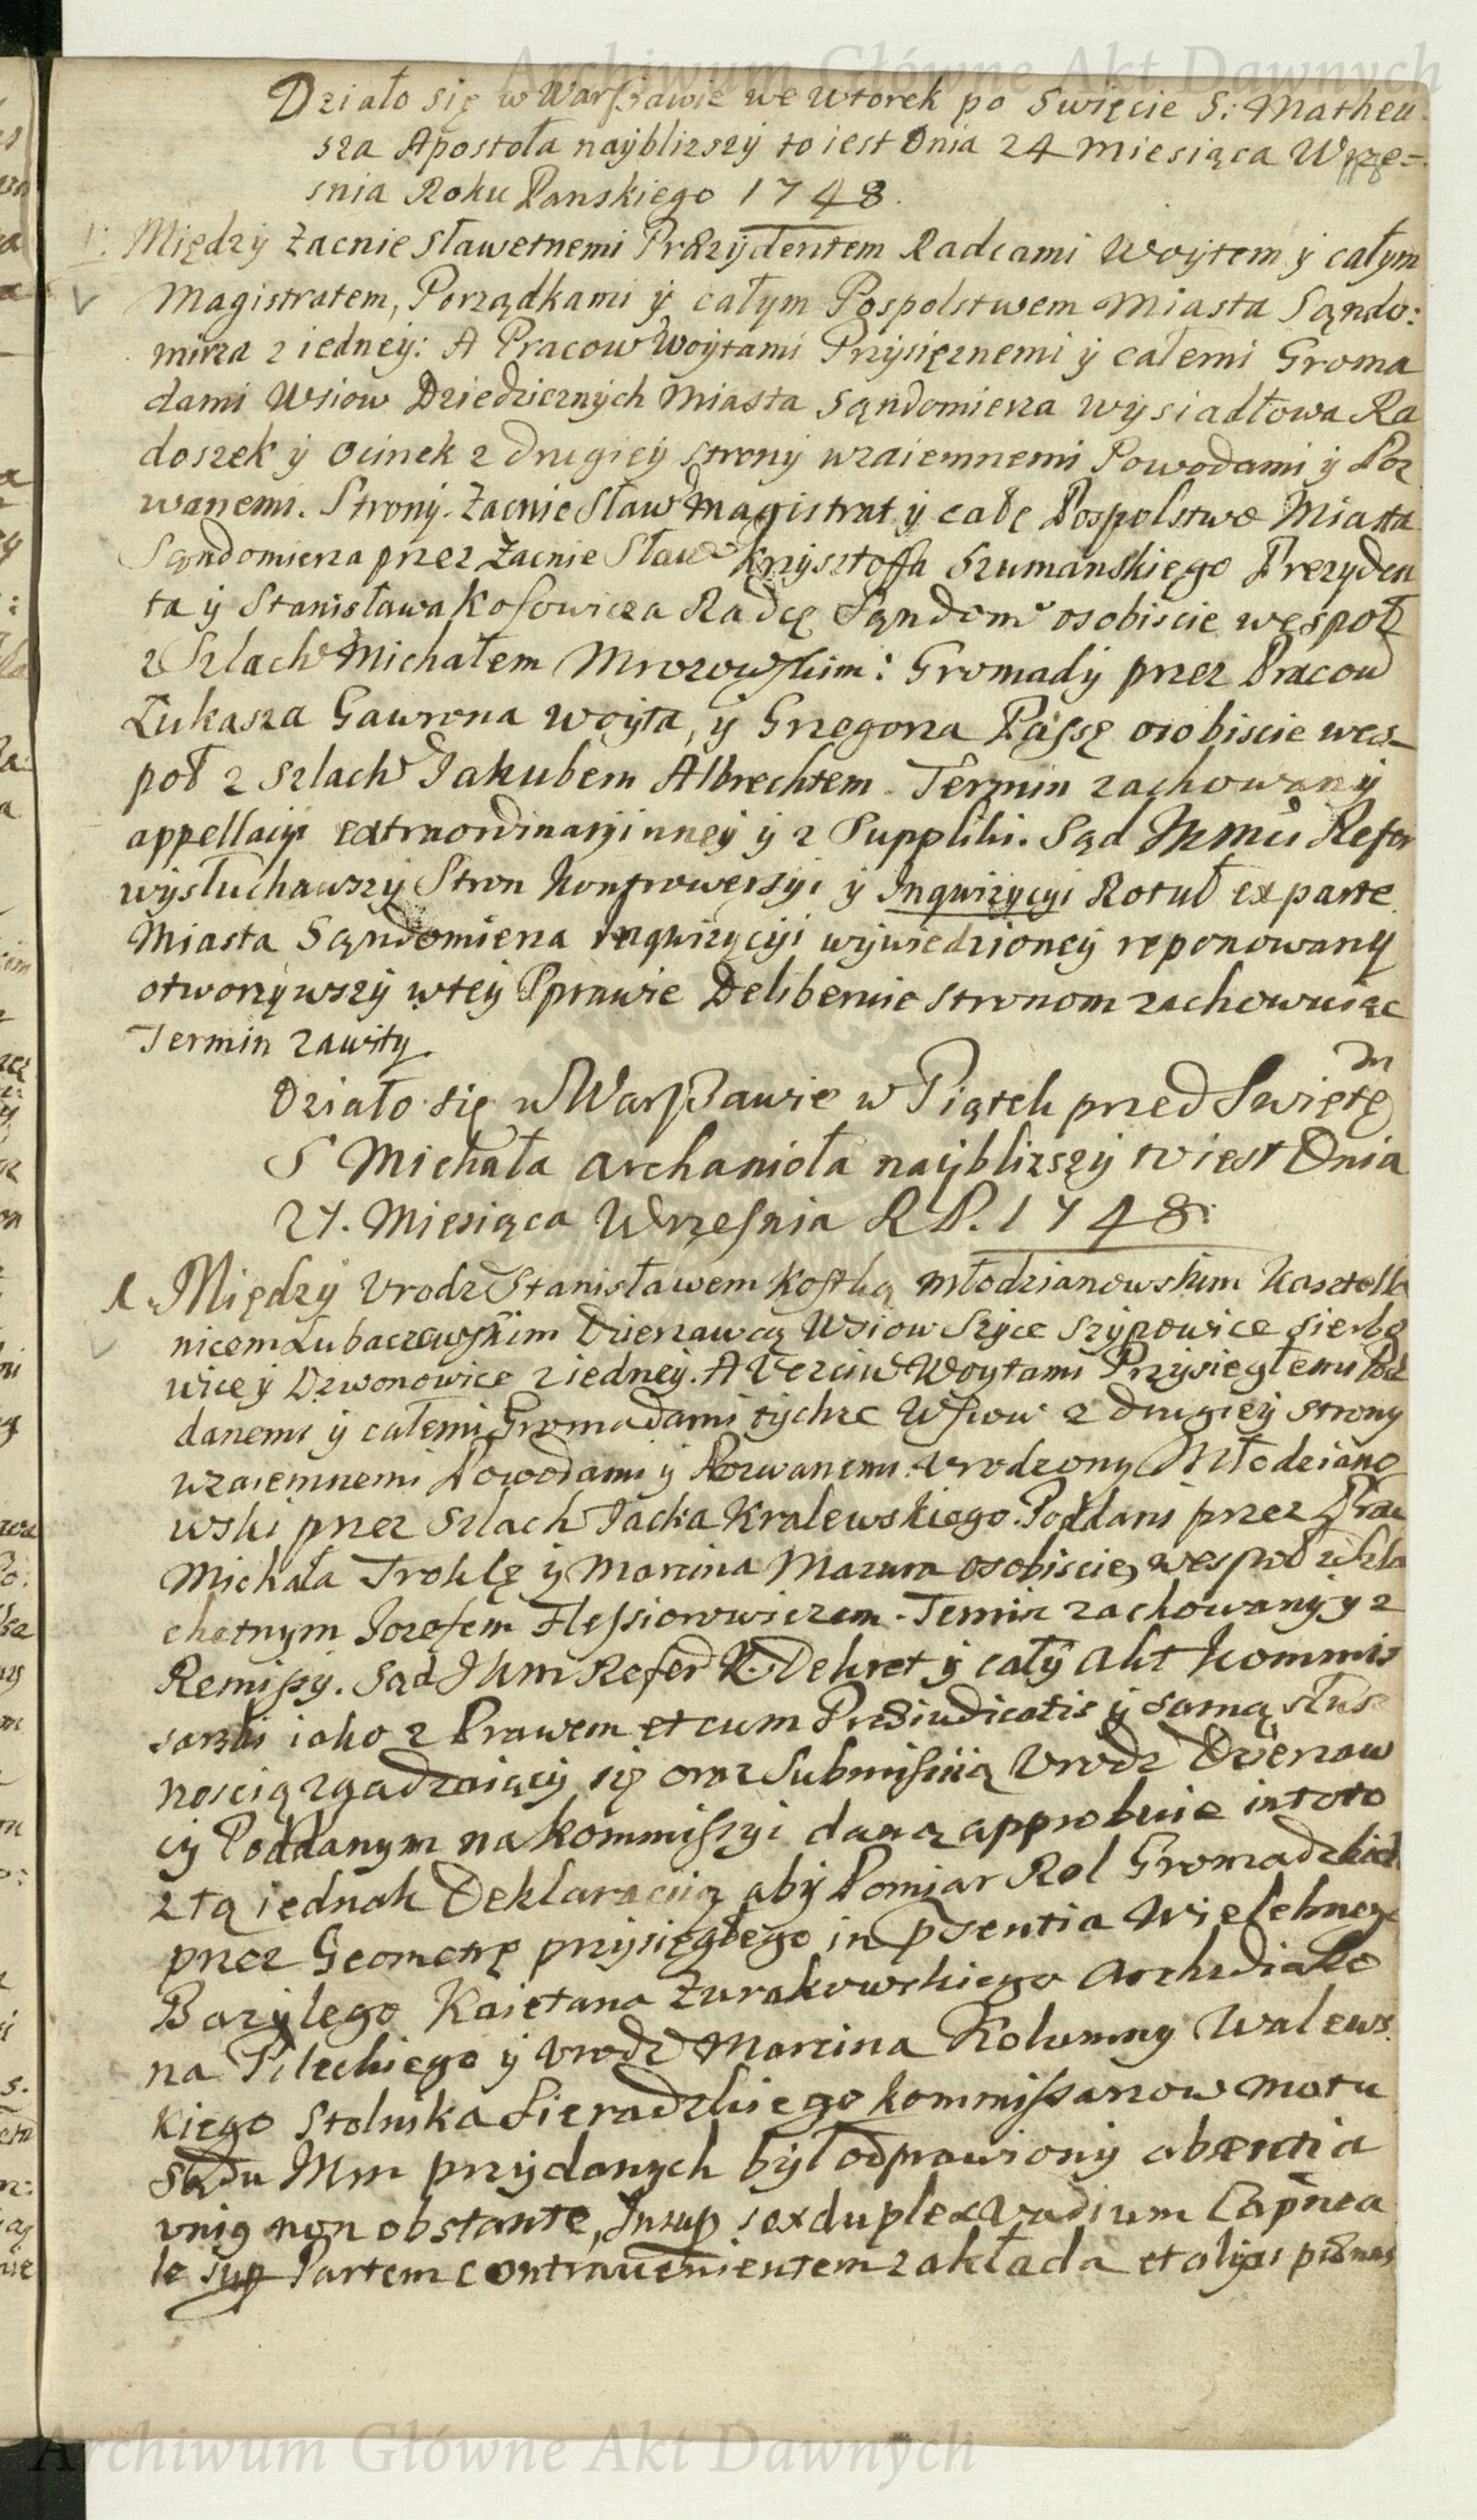 Archiwum Główne Akt Dawnych
Działo się w Warszawie we wtorek po Swięcie S: Matheu-
sza Apostoła naÿbliższÿ to iest Dnia 24 Miesiąca Wrze=
snia Roku Panskiego 1748.
1: Międzÿ Zacnie Sławetnemi Prezÿdentem Radcami Woÿtem ÿ całym
Magistratem, Porządkami ÿ całym Pospolstwem Miasta Sąndo:
mirza z iedneÿ: A Pracow Woÿtami Przÿsięznemi ÿ całemi Groma
dami Wsiow Dziedzicznÿch Miasta Sąndomierza Wysiadłowa Ra
doszek ÿ Ocinek z drugieÿ stronÿ wzaiemnemi Powodami ÿ Poz
wanemi. Stronÿ. Zacnie Sław Magistrat ÿ całe Pospolstwo Miasta
Sąndomierza przez Zacnie Sław Krzÿsztoffa Szumanskiego Prezyden
ta ÿ Stanisława Kosowicza Radcę Sąndom osobiscie wespoł
z Szlach Michałem Mrozowskim: Gromadÿ przez Pracow
Łukasza Gawrona Woÿta, ÿ Grzegorza Passę osobiscie wes-
poł z Szlach Jakubem Albrechtem. Termin zachowanÿ
appellacÿi extraordinarÿinneÿ ÿ z Suppliki. Sąd JKMci Refer
wÿsłuchawszÿ Stron Kontrowersÿi ÿ Inqwizÿcÿi Rotuł ex parte
Miasta Sąndomierza inqwizÿcÿi wÿwiedzioneÿ reponowany
otworzÿwszÿ w teÿ Sprawie Deliberuie stronom zachowuiąc
Termin zawitÿ.
Działo się w Warszawie w Piątek przed Swiętem
S Michała Archanioła naÿbliższÿ to iest Dnia
27. Miesiąca Wrzesnia R P. 1748:
1. Międzÿ Urodz Stanisławem Kostką Młodzianowskim Kasztella
nicem Lubaczewskim Dzierzawcą Wsiow Szÿce Szÿpowice Sierbo
wice ÿ Dzwonowice z iedneÿ. A Uczciw Woytami Przÿsiegłemi Pod
danemi ÿ całemi Gromadami tÿchze Wsiow z drugieÿ strony
wzaiemnemi Powodami ÿ Pozwanemi. Urodzony Młodziano
wski przez Szlach Jacka Kralewskiego. Poddani przez Prac
Michała Trohlę ÿ Marcina Mazura osobiscie, wespoł z Szla
chetnym Jozefem Flessiorowiczem. Termin zachowanÿ ÿ z
Remissÿ. Sąd JKM Refer K. Dekret ÿ całÿ Akt Kommis
sarski iako z Prawem et cum Præiudicatis ÿ samą słusz
nością zgadzaiącÿ się oraz Submissiią Urodz Dzierzaw
cÿ Poddanym na kommissÿi daną approbuie in toto
z tą iednak Deklaraciią abÿ Pomiar Rol Gromadzkich
przez Geometrę przÿsięgłego in psentia Wielebnego
Bazÿlego Kaietana Zurakowskiego Archidiako
na Pileckiego ÿ Urodz Marcina Kolumny Walews
kiego Stolnika Sieradzkiego kommissarzow motu
Sądu JKM przÿdanych bÿł odprawionÿ absentia
unig non obstante, Insup sexduplex Vadium Capnea
le sup Partem contravenientem zakłada et alÿas pœnas
Archiwum Główne Akt Dawnych